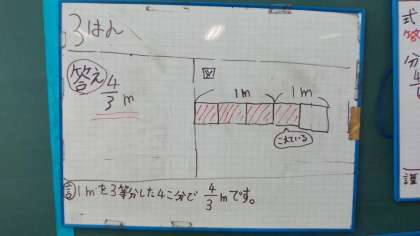 3はん
答え 4/3 m
図
1m 1m
こえている
言 1mを3等分した4こ分で 4/3 mです。
式
答
分
4
謹